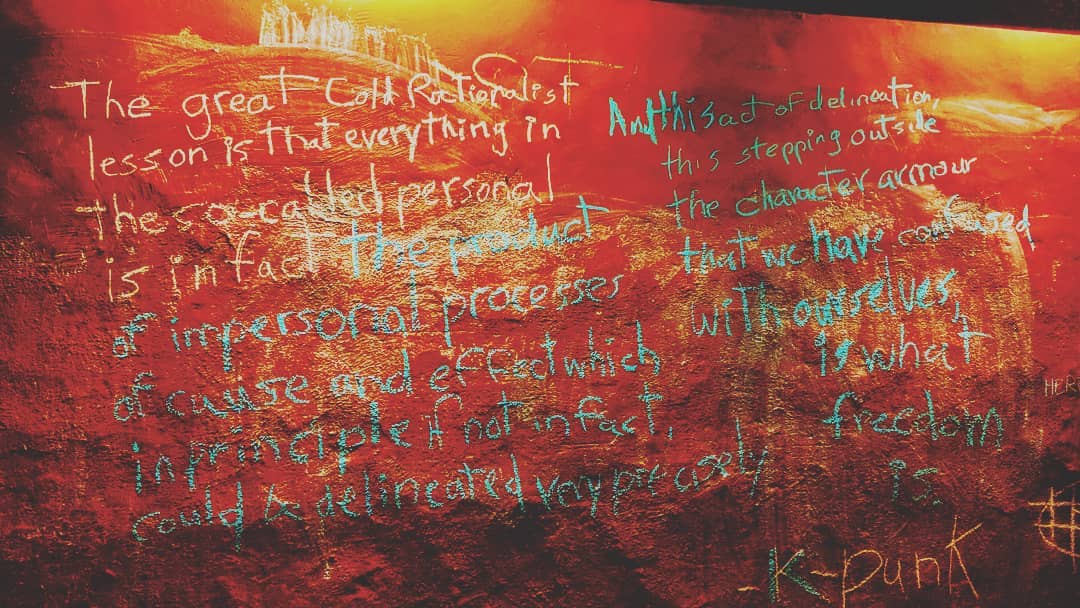 The great Cold Rationalist
lesson is that everything in
the so-called personal
is in fact the product
of impersonal processes
of cause and effect which
in principle if not in fact,
could be delineated very precisely
And this act of delineation,
this stepping outside
the character armour
that we have confused
with ourselves,
is what
freedom
is.
-K-punk
HERO
#